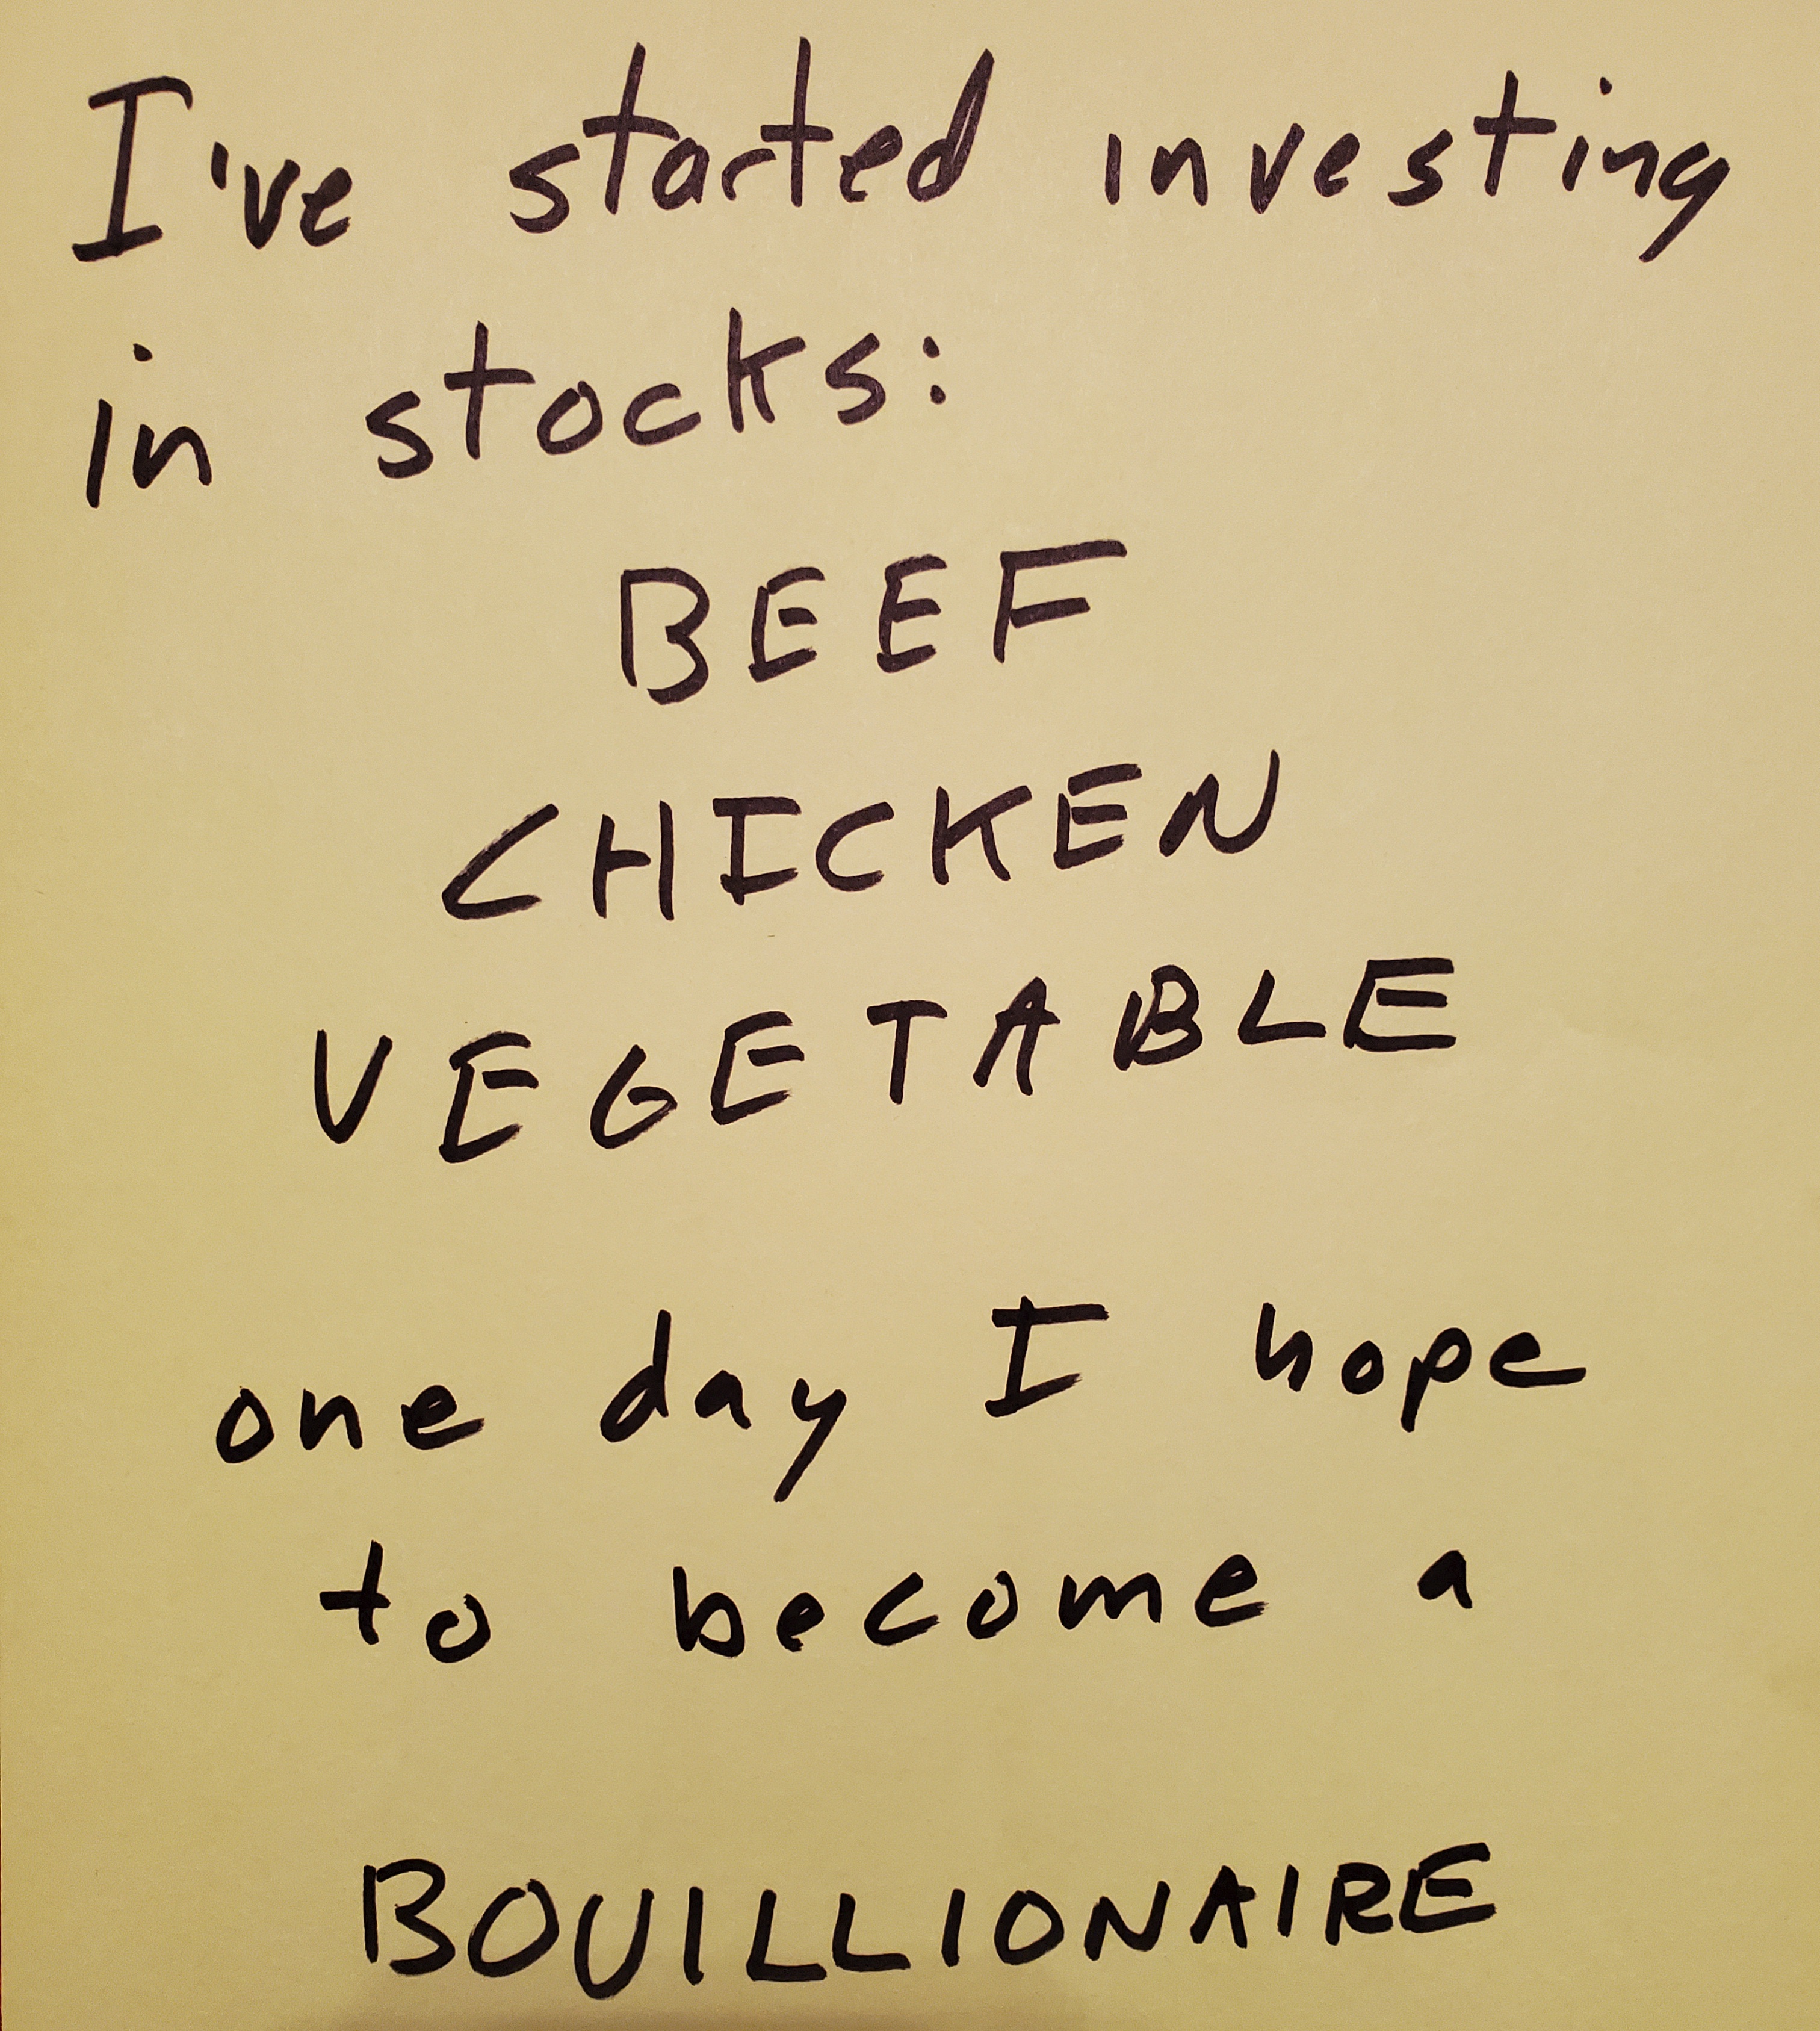 I've started investing
in stocks:
BEEF
CHICKEN
VEGETABLE
one day I hope
to become a
BOUILLIONAIRE